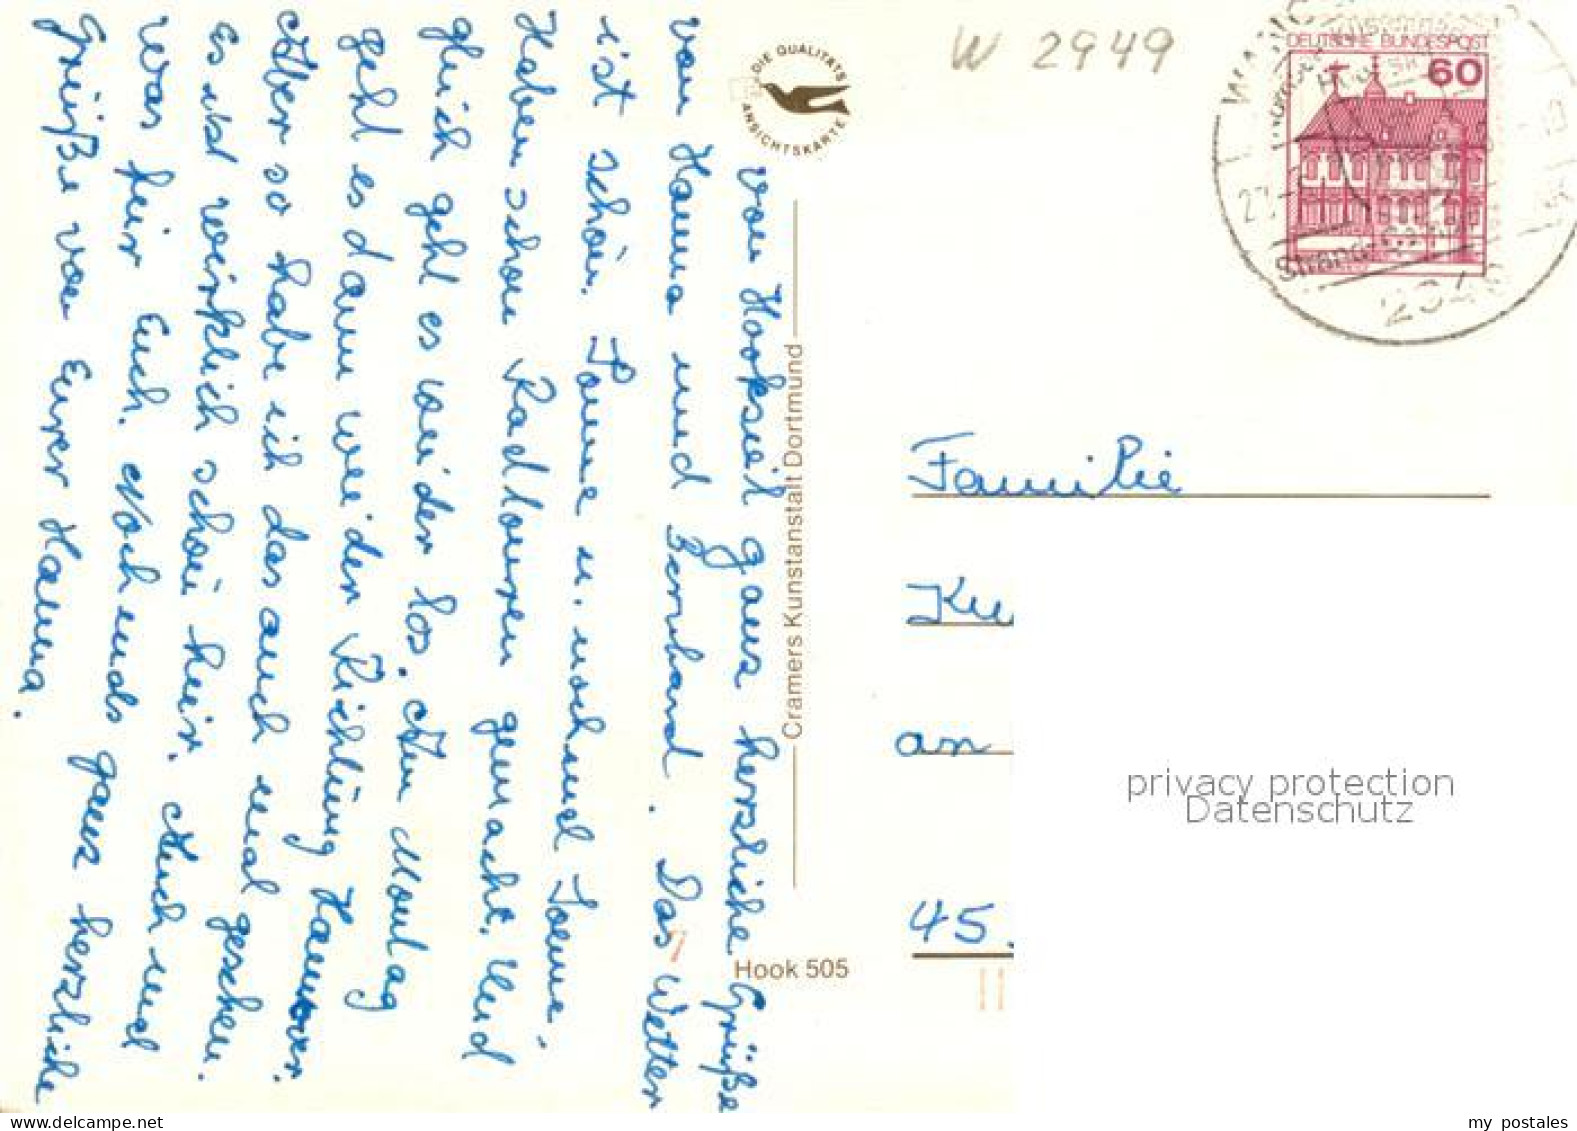 von Hooksiel ganz herzliche Grüße
von Hanna und Bernhard. Das Wetter
ist schön. Sonne u. nochmal Sonne,
Haben schon Radtouren gemacht. Und
gleich geht es wieder los. Am Montag
geht es dann wieder Richtung Hannover.
Aber so habe ich das auch mal gesehen.
Es ist wirklich schön hier. Auch mal
was für Euch. Nochmals ganz herzliche
Grüße von Eurer Hanna.
DIE QUALITÄTS
ANSICHTSKARTE
Cramers Kunstanstalt Dortmund
Hook 505
W 2949
DEUTSCHE BUNDESPOST
60
Familie
Ku
an
45.
privacy protection
Datenschutz
my postales